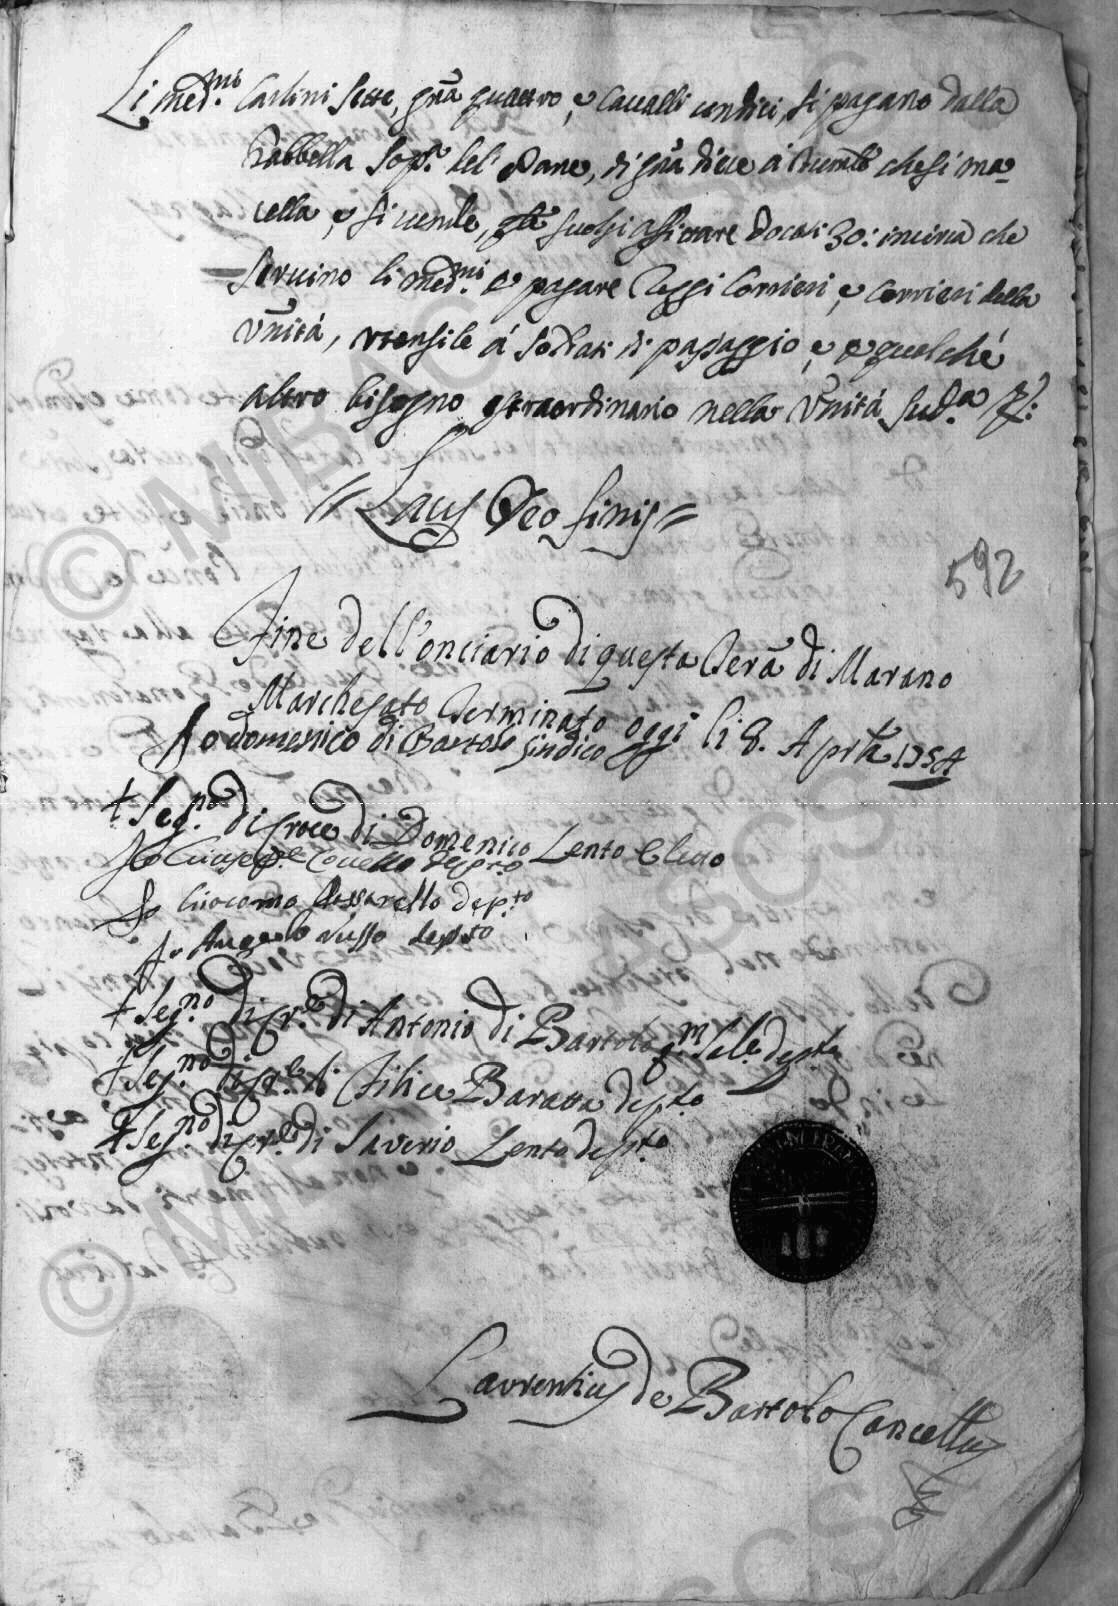 Li med.mi Carlini sette, grã quattro, e Cavalli undici, si pagano dalla
Gabbella Sop.ª del Pane, di grã diece á che si ma-
cella e si vende, suol si affittare docati 30: incirca che
servino li med.mi p pagare Reggi Corrieri, e Corrieri della
Vnitá, vtensile á Soldati di pasaggio, e p qualche
altro bisogno straordinario nella Vnitá sud.a
// Laus Deo finis //
592
Fine dell'onciario di questa Terã di Marano
Marchesato Terminato oggi li 8. Aprẽ 1754
Io domenico di Bartolo Sindico
+ Seg.no di Croce di Domenico Lento Eletto
Io Giuseppe Covello dep.to
Io Giacomo Passarello dep.to
Io Angelo Russo dep.to
+ Seg.no di Cr.e di Antonio di Bartolo q.m dep.to
+ Seg.no di Cr.e di Filice Baratta dep.to
+ Seg.no di Cr.e di Saverio Lento dep.to
Laurentius de Bartolo Cancell.us
© MIBAC ASCS
© MIBAC ASCS
ASCS